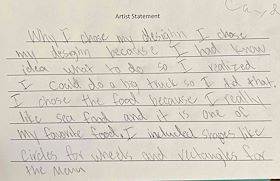 Artist Statement
Why I chose my desigin I chose
my desigin because I had know
idea what to do so I realized
I could do a big truck so I did that.
I chose the food because I really
like sea food and it is one of
my favorite food. I included shapes like
circles for wheels and rectangles for
the main